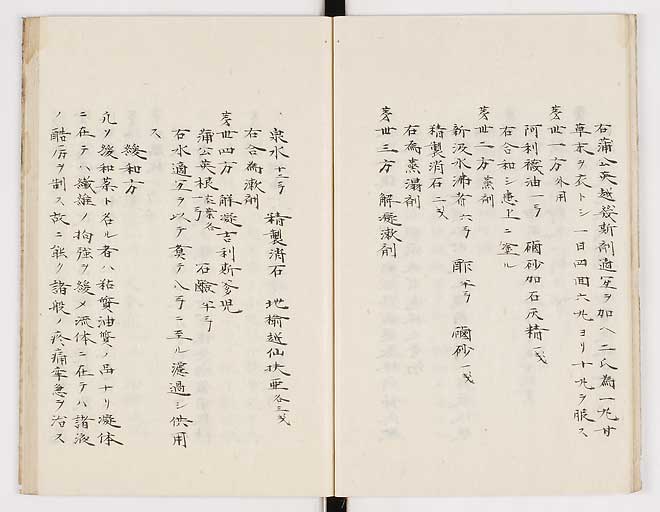 右蒲公英越幾斯剤適宜ヲ加ヘ二氏為一丸甘
草末ヲ衣トシ一日四回六丸ヨリ十丸ヲ服ス
第丗一方 外用
阿利襪油一弓 磠砂加石灰精一戔
右合和シ患上ニ塗ル
第丗二方 薫剤
新汲水沸者六弓 酢半弓 磠砂一戔
精製消石二戔
右為薫溻剤
第丗三方 解凝漱剤
泉水十二弓 精製消石 地榆越仙扶亜各三戔
右合為漱剤
第丗四方 解凝吉利斯多児
蒲公英根去葉各一弓 石鹸半弓
右水適宜ヲ以テ煮テ八弓ニ至ル濾過シ供用
ス
緩和方
凡ソ緩和薬ト名ル者ハ粘質油質ノ品ナリ凝体
ニ在テハ繊維ノ拘強ヲ緩メ流体ニ在テハ諸液
ノ酷厉ヲ割ス故ニ能ク諸般ノ疼痛牽急ヲ治ス